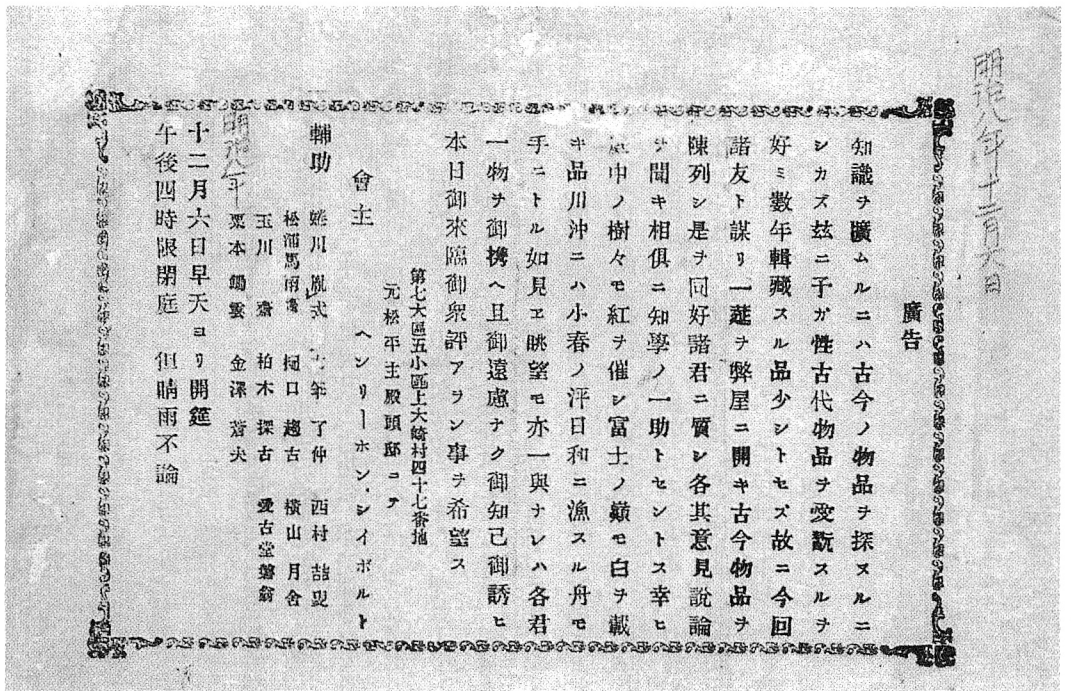 明治八年十二月六日
廣告
知識ヲ擴ムルニハ古今ノ物品ヲ探ヌルニ
シカズ玆ニ予ガ性古代物品ヲ愛翫スルヲ
好ミ數年輯藏スル品少シトセズ故ニ今回
諸友ト謀リ一莚ヲ弊屋ニ開キ古今物品ヲ
陳列シ是ヲ同好諸君ニ質シ各其意見說論
ヲ聞キ相俱ニ知學ノ一助トセントス幸ヒ
中ノ樹々モ紅ヲ催シ富士ノ巓モ白ヲ載
キ品川沖ニハ小春ノ泙日和ニ漁スル舟モ
手ニトル如見ヱ眺望モ亦一興ナレハ各君
一物ヲ御携ヘ且御遠慮ナク御知己御誘ヒ
本日御來臨御衆評アラン事ヲ希望ス
第七大區五小區上大崎村四十七番地
元松平主殿頭邸ニテ
會主 ヘンリーホン,シイボルト
輔助 蜷川胤式 了仲 西村喆叟
松浦馬角齋 樋口趨古 橫山月舍
玉川齋 柏木探古 愛古堂磐翁
栗本鋤雲 金澤蒼夬
明治八年
十二月六日早天ヨリ開筵
午後四時限閉庭 但晴雨不論